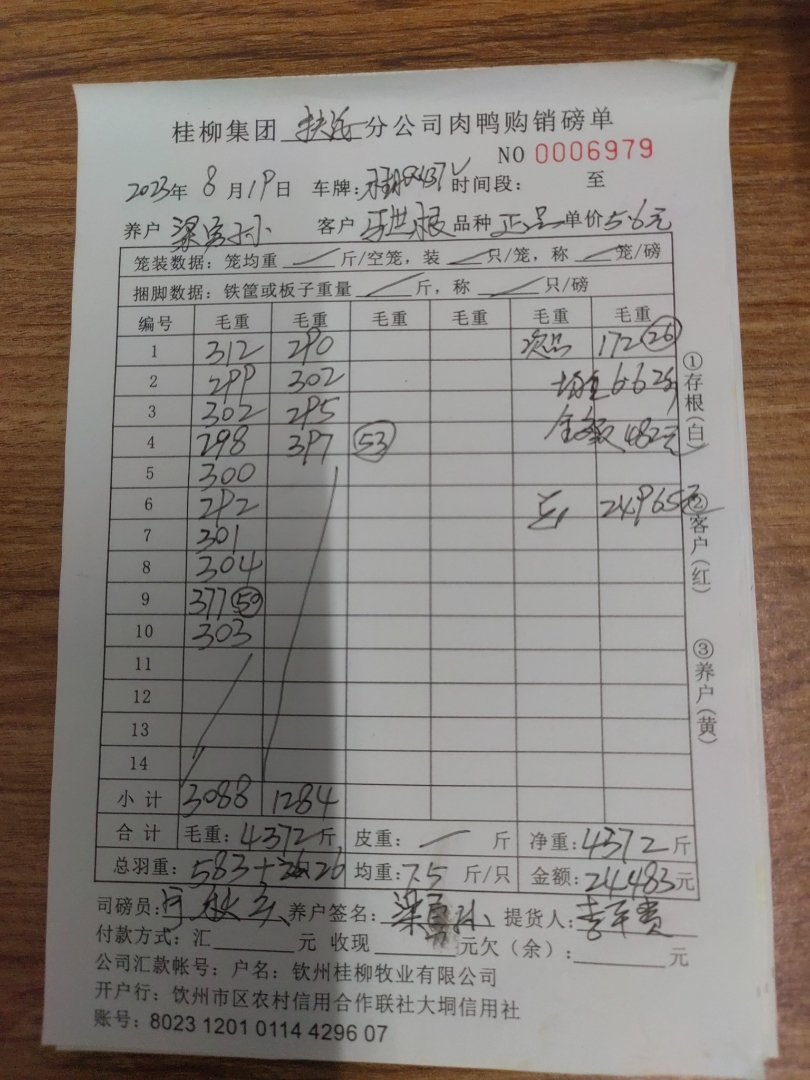 桂柳集团 分公司肉鸭购销磅单
NO 0006979
2023年 8月19日 车牌: 时间段: 至
养户 梁 孙 客户 世根 品种 正品 单价5.6元
笼装数据：笼均重 斤/空笼，装 只/笼，称 笼/磅
捆脚数据：铁筐或板子重量 斤，称 只/磅
编号 毛重 毛重 毛重 毛重 毛重 毛重
1 312 290 次品 172 26
2 299 302 均重6.6
3 302 295 金额 482元
4 298 397 53
5 300
6 292 总 24965元
7 301
8 304
9 377 59
10 303
11
12
13
14
小计 3088 1284
合计 毛重: 4372斤 皮重: 斤 净重: 4372斤
总羽重: 583+ 26 均重: 7.5 斤/只 金额: 24483元
司磅员: 养户签名: 梁 孙 提货人: 李
付款方式：汇 元 收现 元欠（余）: 元
公司汇款帐号：户名：钦州桂柳牧业有限公司
开户行：饮州市区农村信用合作联社大垌信用社
账号：8023 1201 0114 4296 07
①存根(白)
②客户(红)
③养户(黄)